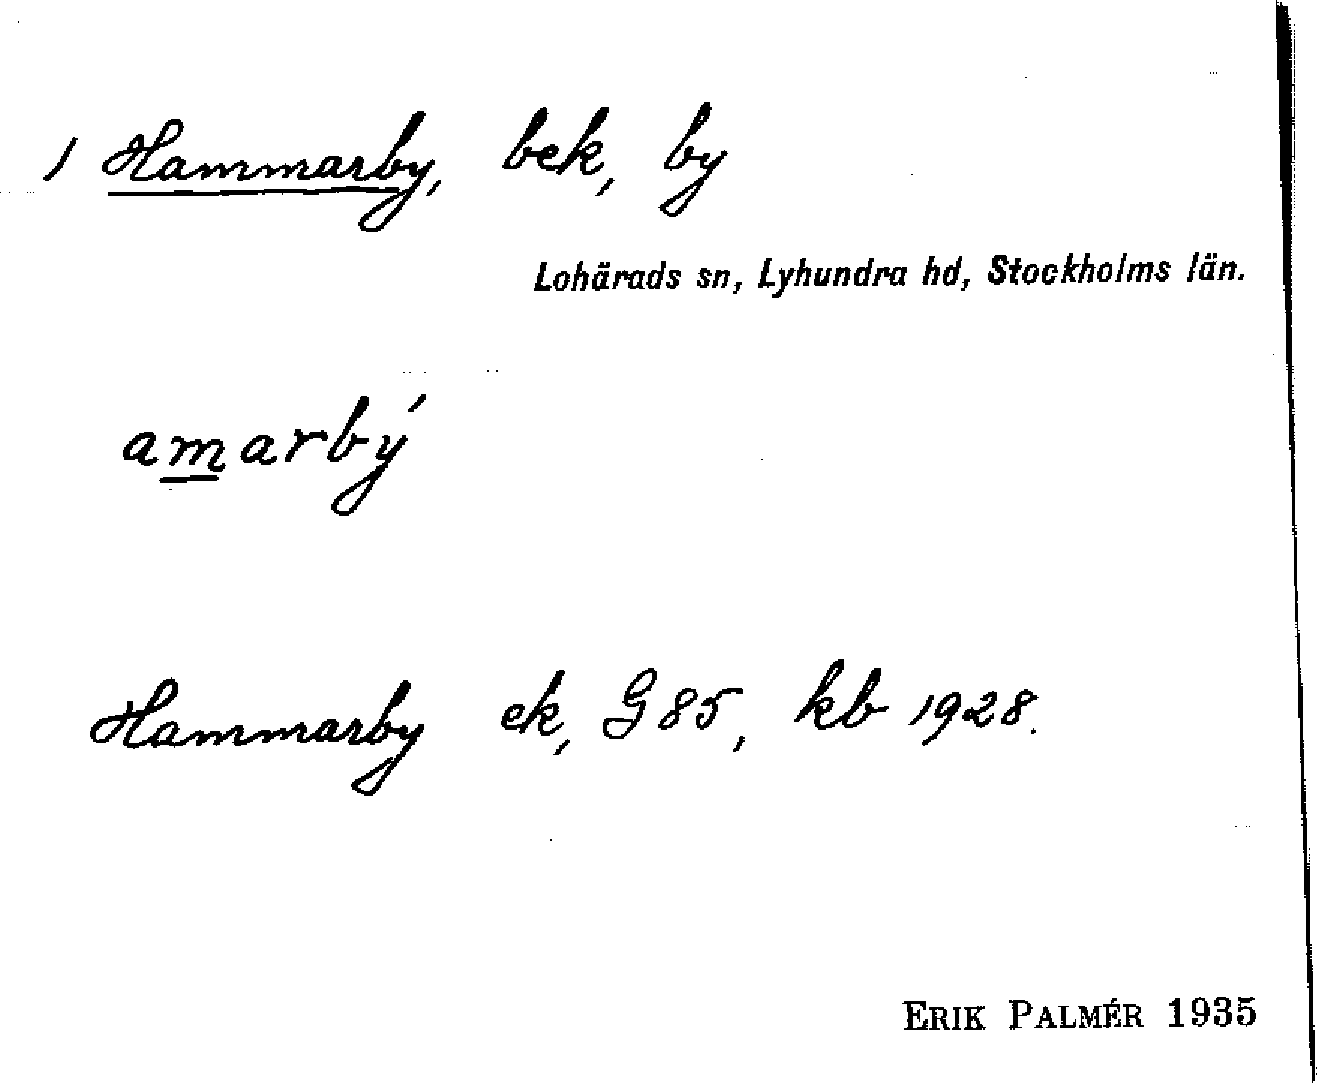 1 Hammarby, bek, by
Lohärads sn, Lyhundra hd, Stockholms län.
amarbý
Hammarby ek, G 85, kb 1928.
ERIK PALMÉR 1935